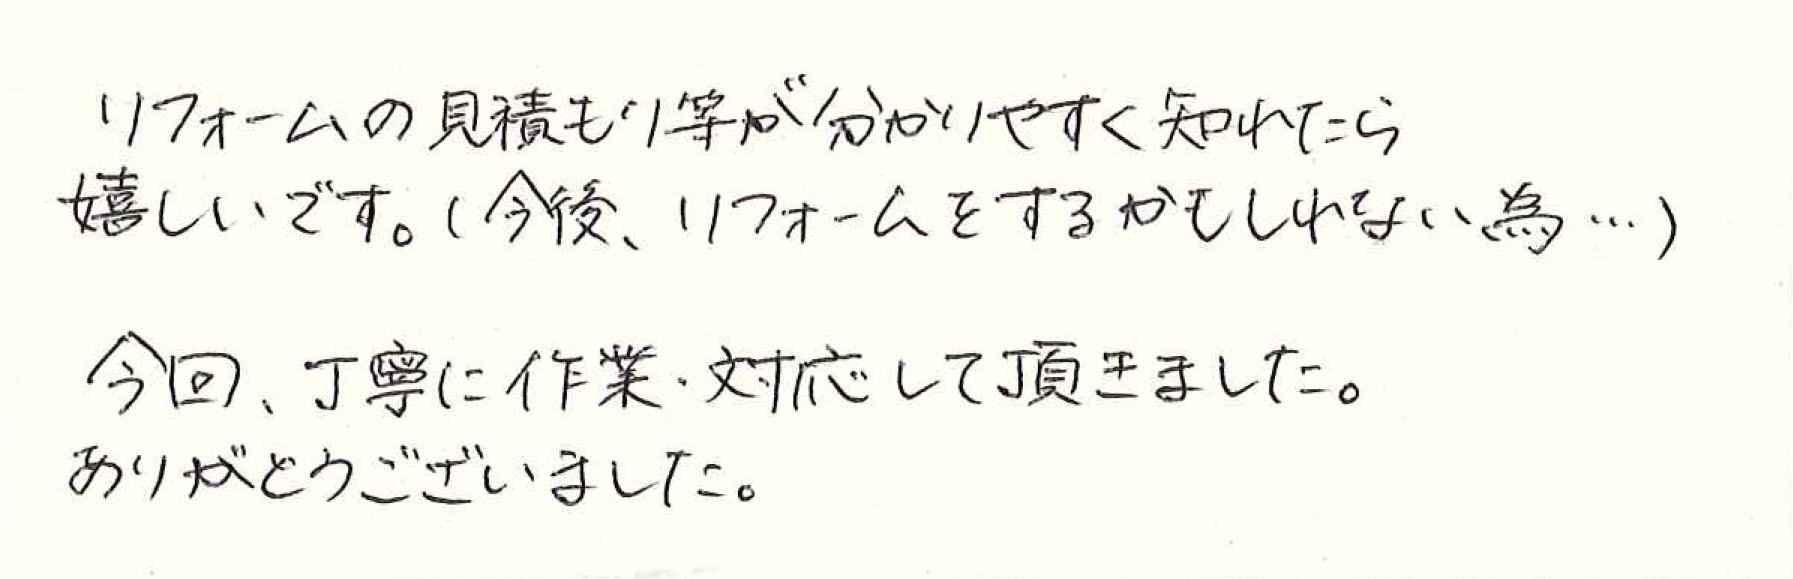 リフォームの見積もり等が分かりやすく知れたら
嬉しいです。(今後、リフォームをするかもしれない為…)
今回、丁寧に作業・対応して頂きました。
ありがとうございました。